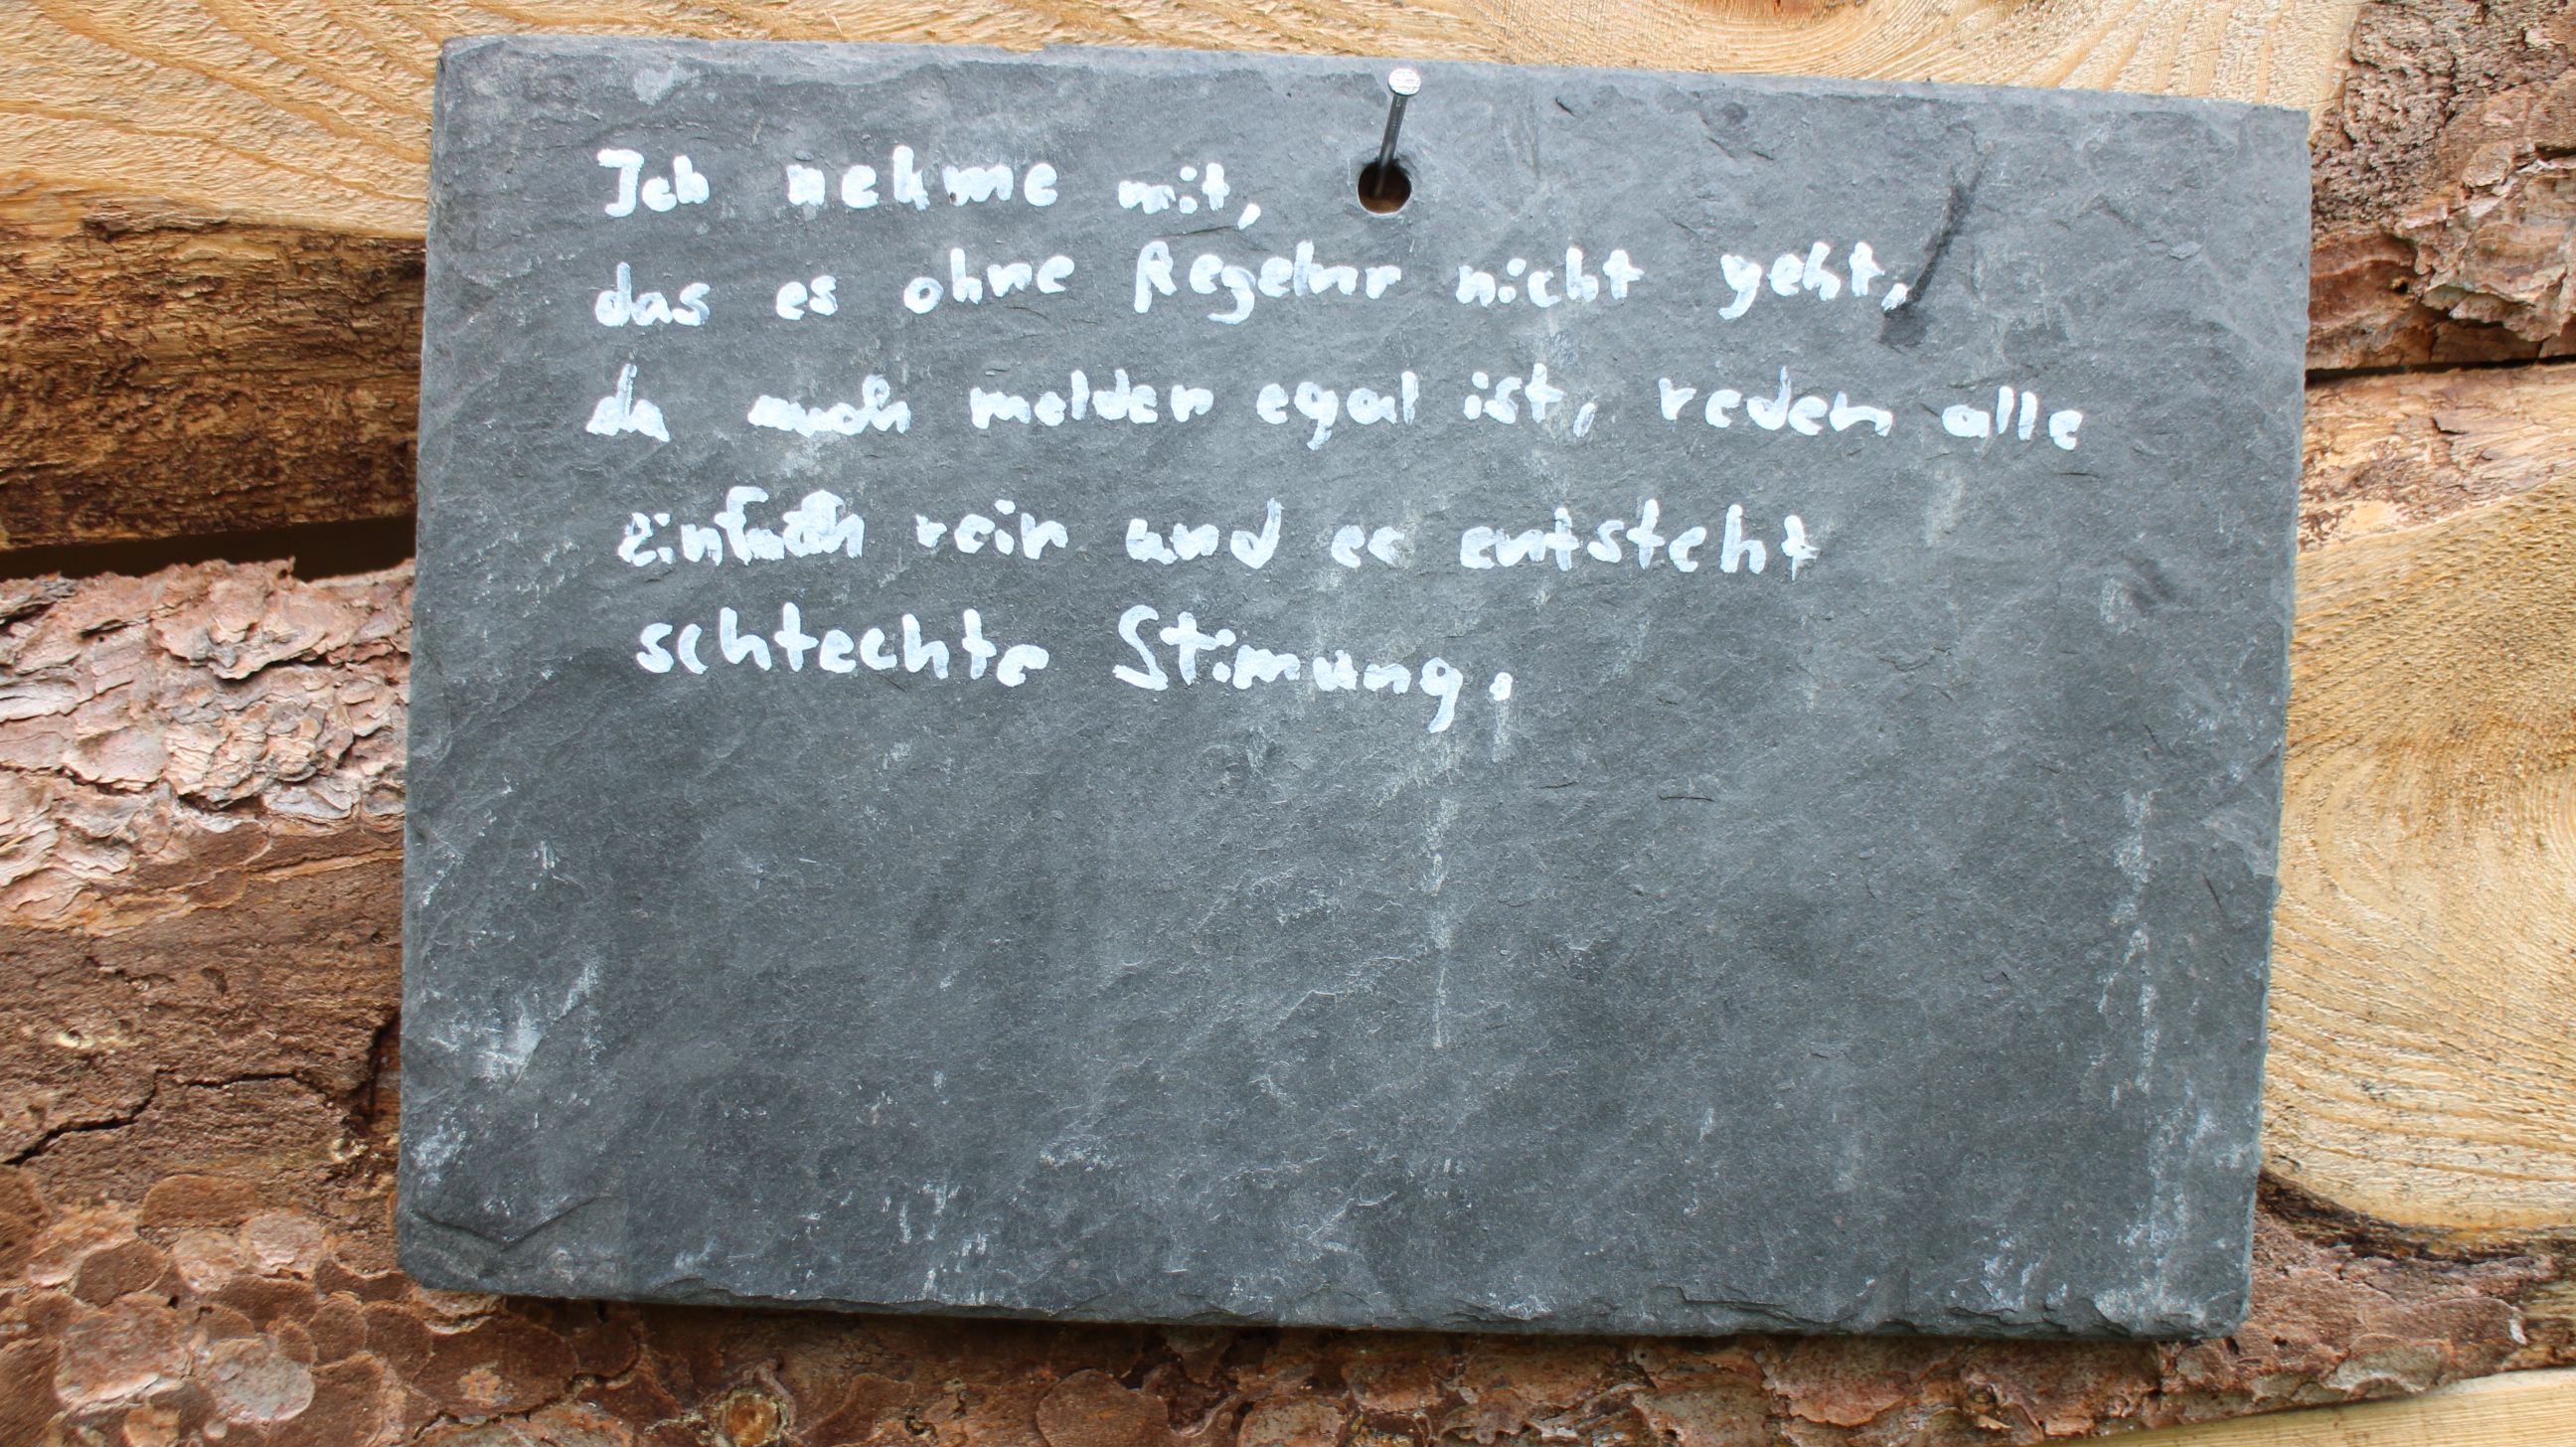 Ich nehme mit,
das es ohne Regeln nicht geht,
da auch melden egal ist, reden alle
einfach rein und es entsteht
schlechte Stimung.